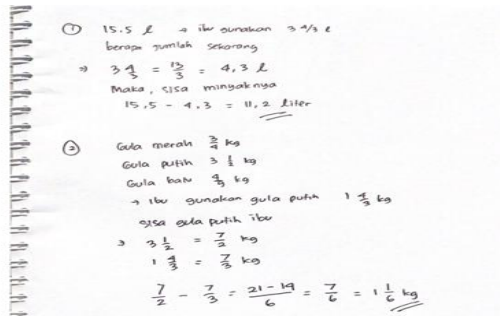 ① 15.5 l → ibu gunakan 3 4/3 l
berapa jumlah sekarang
⇒ 3 4/3 = 13/3 = 4,3 l
Maka, sisa minyaknya
15,5 - 4,3 = 11,2 liter
② Gula merah 3/4 kg
Gula putih 3 1/2 kg
Gula batu 4/3 kg
→ ibu gunakan gula putih 1 4/3 kg
sisa gula putih ibu
⇒ 3 1/2 = 7/2 kg
1 4/3 = 7/3 kg
7/2 - 7/3 = 21-14/6 = 7/6 = 1 1/6 kg